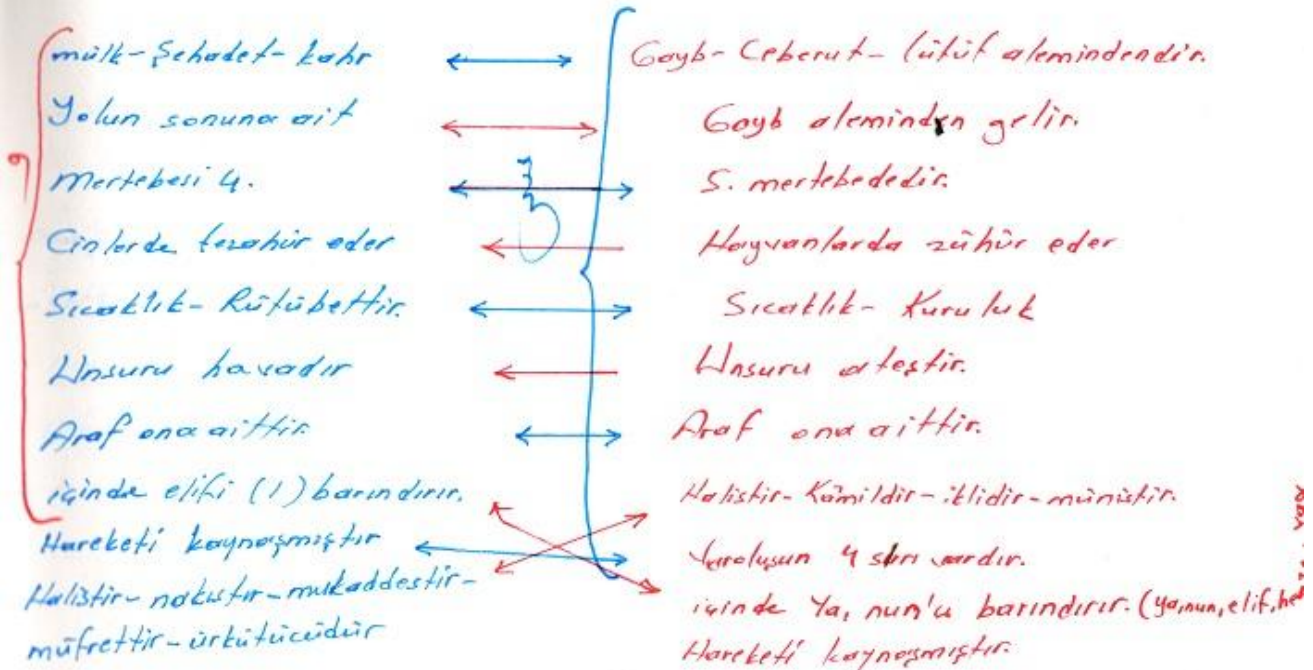 mülk-Şehadet-kahr
Yolun sonuna ait
Mertebesi 4.
Cinlerde tezahür eder
Sıcaklık-Rütübettir.
Unsuru havadır
Araf ona aittir.
içinde elifi (1) barındırır.
Hareketi kaynaşmıştır
Halistir-nakıstır-mukaddestir-
müfrettir-ürkütücüdür
Gayb-Ceberut-lütüf alemindendir.
Gayb aleminden gelir.
5. mertebededir.
Hayvanlarda zühür eder
Sıcaklık-Kuruluk
Unsuru ateştir.
Araf ona aittir.
Halistir-Kâmildir-iklidir-münistir.
Yaroluşun 4 sırrı vardır.
içinde Ya, nun'u barındırır. (ya, nun, elif, he
Hareketi kaynaşmıştır.